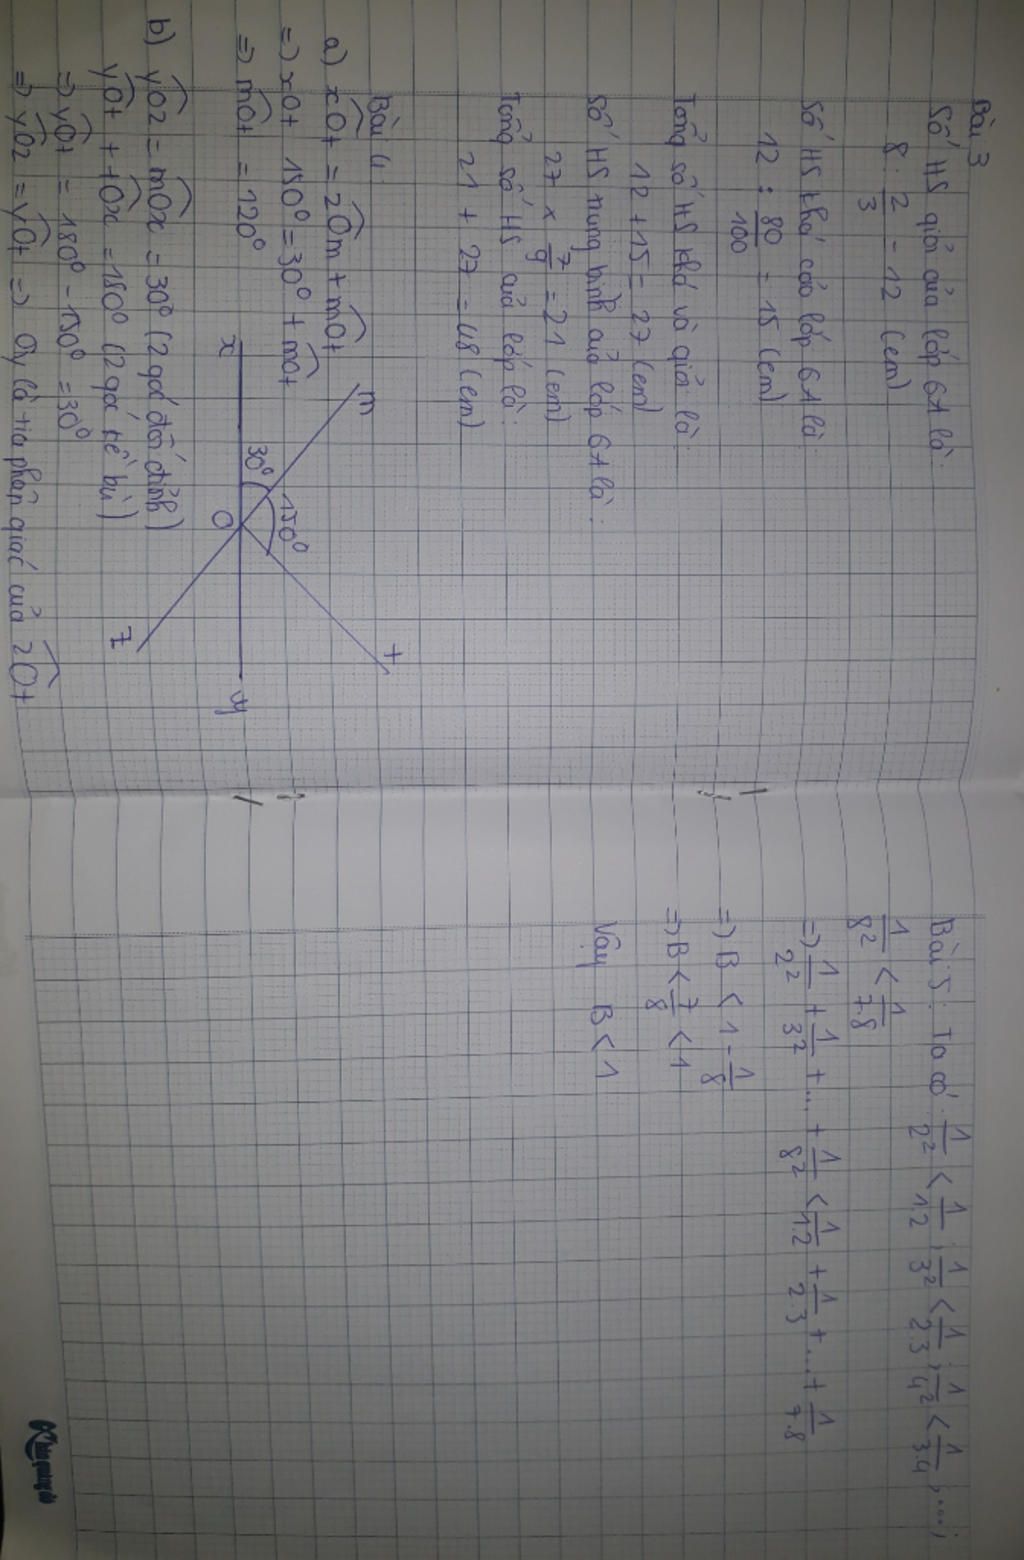 Bài 3
Số HS giỏi của lớp 6A là:
8 : 2/3 = 12 (em)
Số HS khá của lớp 6A là:
12 : 80/100 = 15 (em)
Tổng số HS khá và giỏi là:
12 + 15 = 27 (em)
Số HS trung bình của lớp 6A là:
27 × 7/9 = 21 (em)
Tổng số HS của lớp là:
21 + 27 = 48 (em)
Bài 4
a) xOt = xOm + mOt
=> xOt 150° = 30° + mOt
=> mOt = 120°
x
m
30°
150°
O
t
z
y
b) yOz = mOx = 30° (2 góc đối đỉnh)
yOt + tOx = 180° (2 góc kề bù)
=> yOt = 180° - 150° = 30°
=> yOz = yOt => Oy là tia phân giác của zOt
Bài 5: Ta có 1/2² < 1/1.2 ; 1/3² < 1/2.3 ; 1/4² < 1/3.4 , ....;
1/8² < 1/7.8
=> 1/2² + 1/3² + ... + 1/8² < 1/1.2 + 1/2.3 + ... + 1/7.8
=> B < 1 - 1/8
=> B < 7/8 < 1
Vậy B < 1